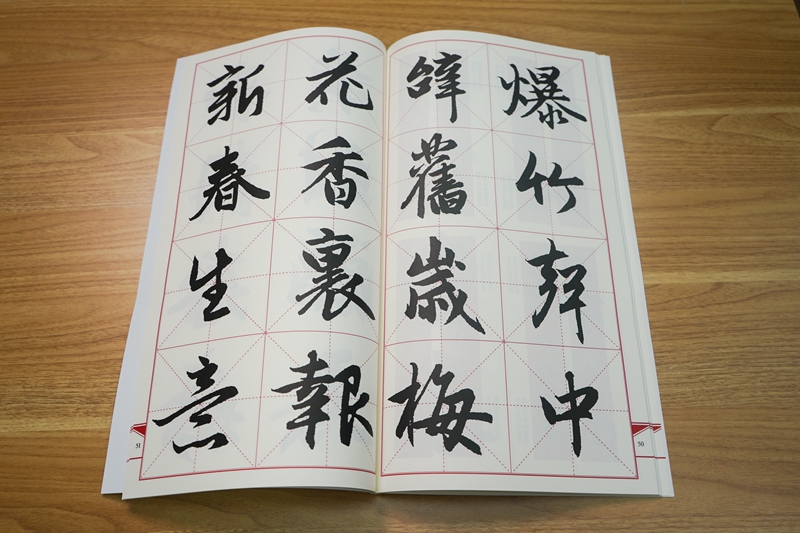 爆竹聲中
辭舊歲梅
花香裏報
新春生意
50
51